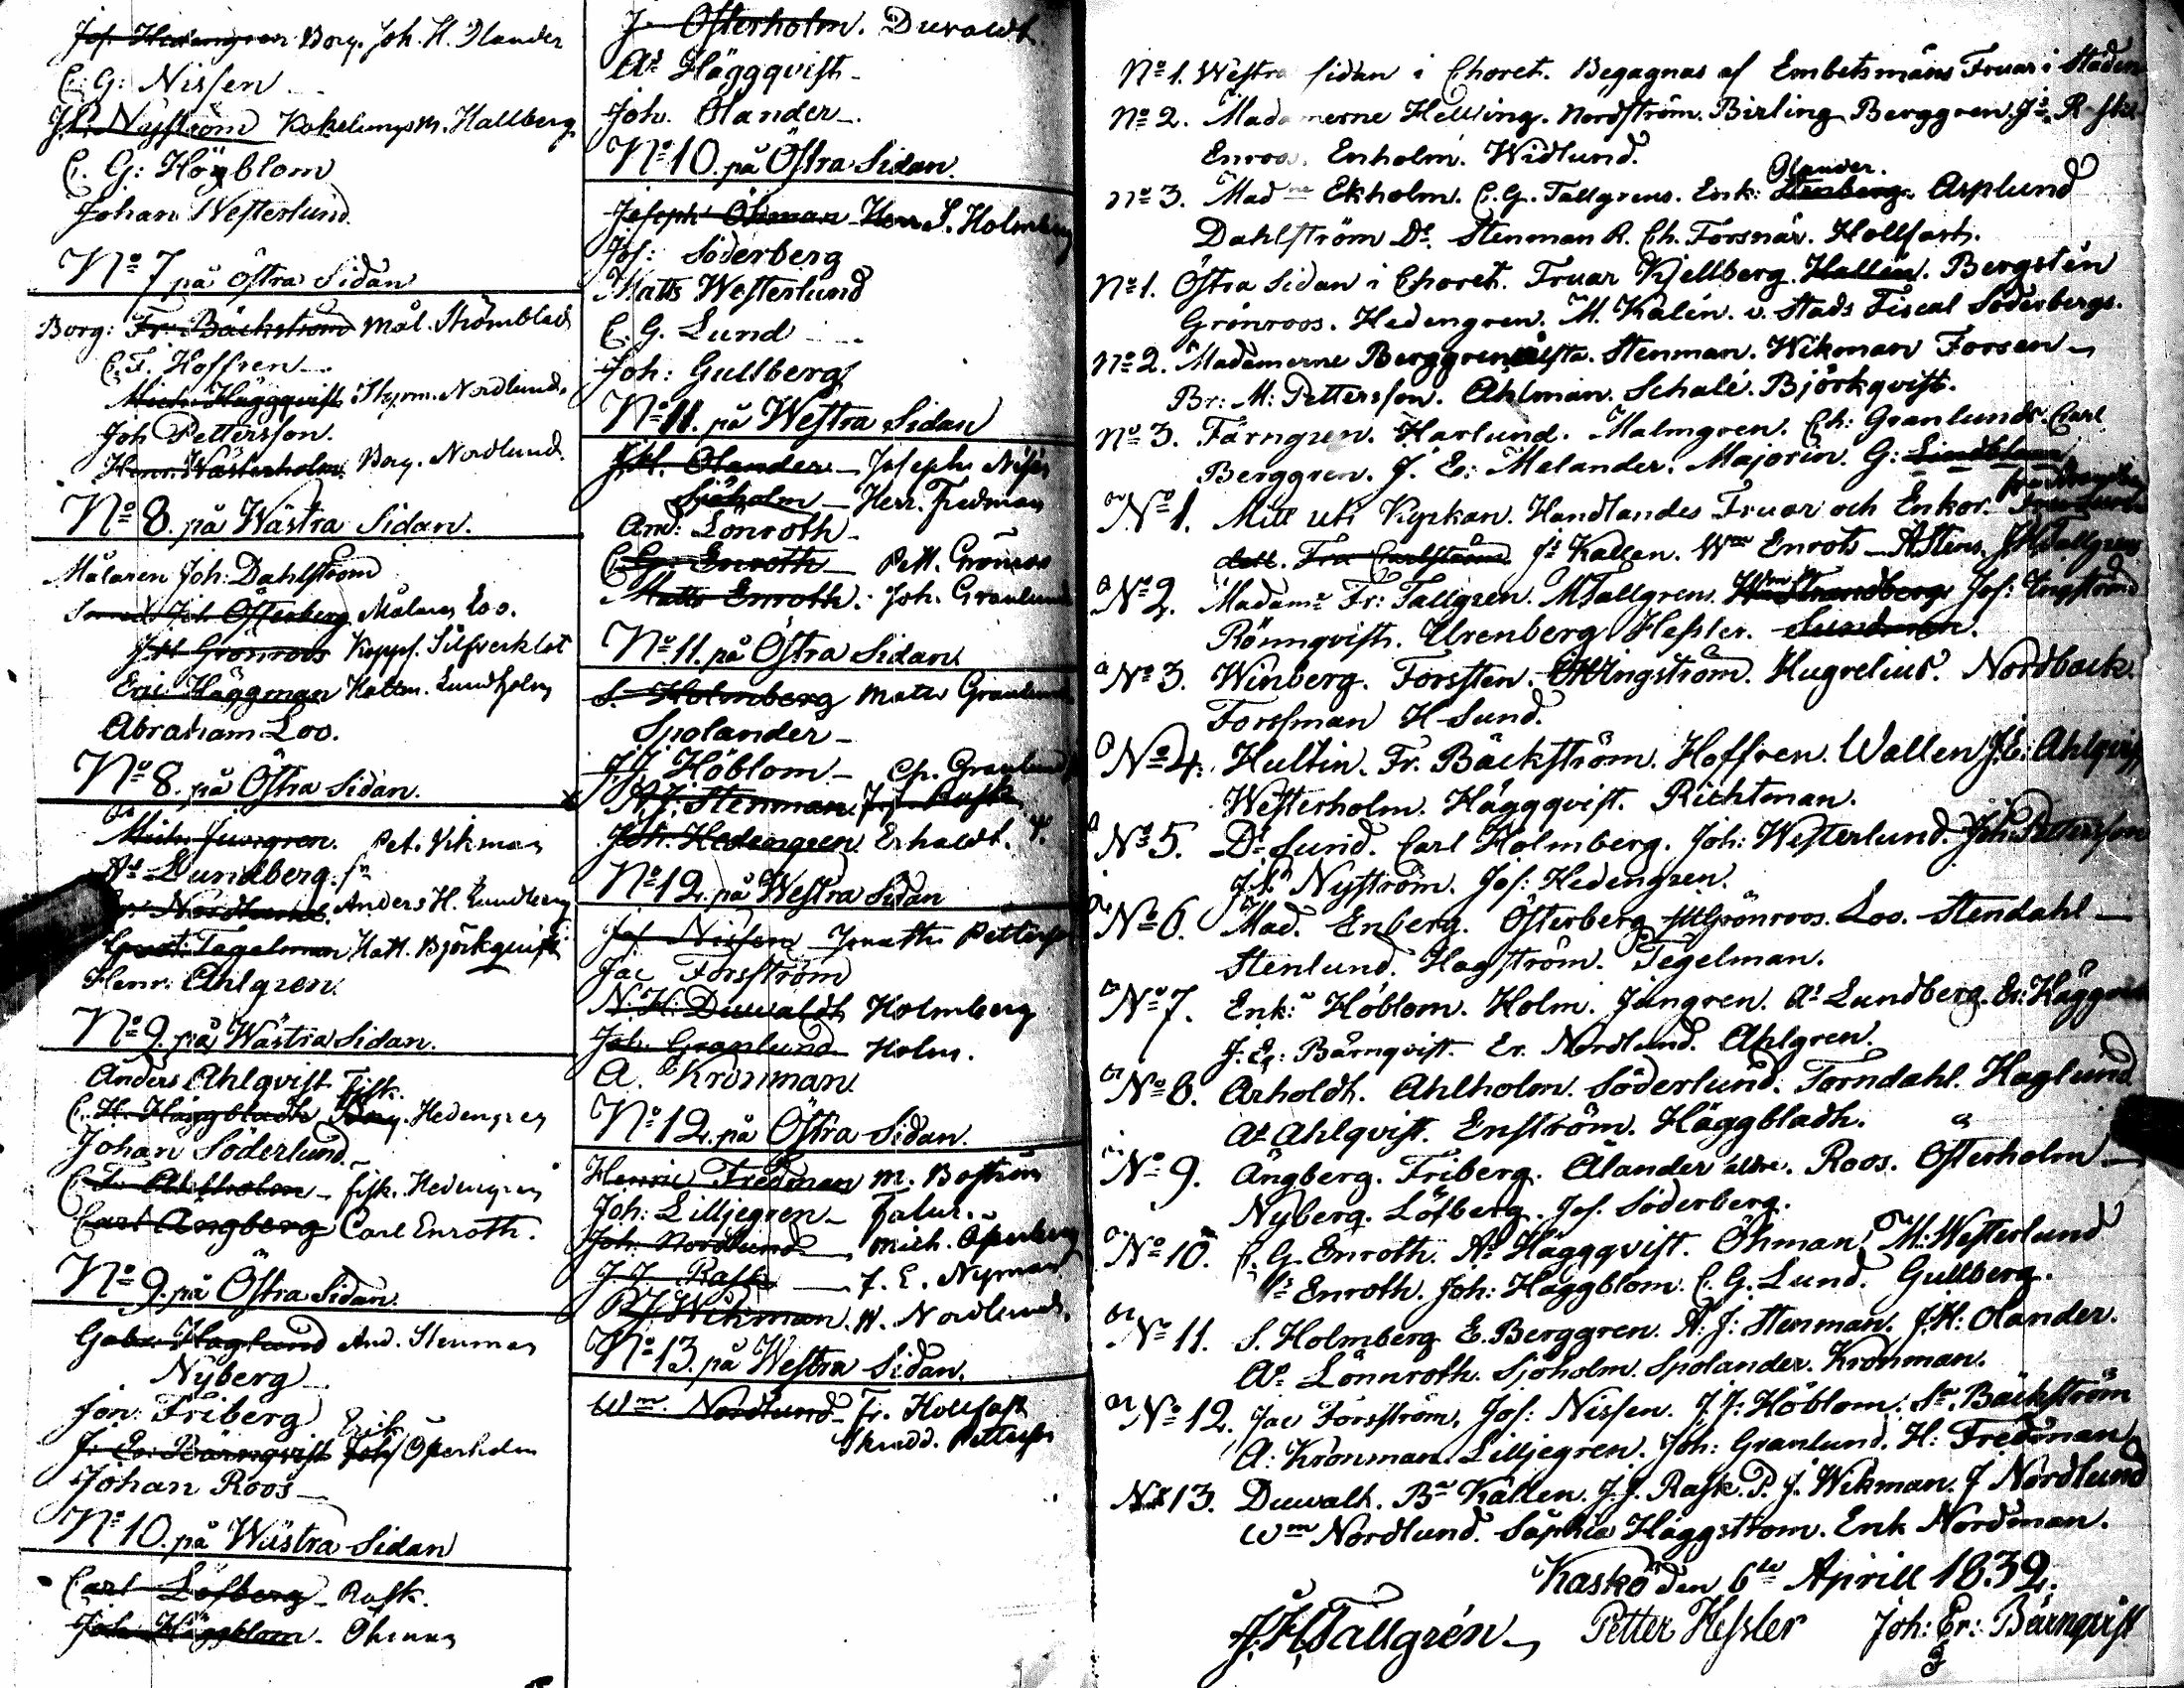 Jos. Hedengren Borg. Joh. H. Olander
C: G: Nissen
J.P. Nyström Hallberg
C. G: Höyblom
Johan Westerlund
Nº 7 på Östra Sidan
Borg: Fr: Bäckström Mål. Strömblad
C. F. Hoffren
Mich. Häggqvist Styrm. Nordlund
Joh Pettersson.
Henr. Wästerholm Borg. Nordlund.
Nº 8. på Wästra Sidan.
Målaren Joh: Dahlström
Joh Österberg Målaren Loo.
J H Grönroos Koppsl. Silfverklot
Eric Häggman Lundholm
Abraham Loo.
Nº 8. på Östra Sidan.
Mich. Jungren. Pet. Vikman
As Lundberg. sn
Anders H. Lundberg
Tegelman Hatt. Björkqvist
Henr: Ahlgren.
Nº 9. på Wästra Sidan.
Anders Ahlqvist
Fisk.
C. H. Häggbladh Borg. Hedengren
Johan Söderlund
Ahlholm fisk. Hedengren
Carl Ängberg Carl Enroth.
Nº 9. på Östra Sidan.
Gabr. Haglund And. Stenman
Nyberg
Jon: Friberg
Erik
J: Er: Bärnqvist Joh Österholm
Johan Roos
Nº 10. på Wästra Sidan
Carl Löfberg Rask.
Joh: Häggblom. Öhman
J. Österholm. Duvaldt.
As Häggqvist
Joh. Ölander
Nº 10. på Östra Sidan.
Joseph Öhman Herr S. Holmberg
Jos: Söderberg
Matts Westerlund
C. G. Lund
Joh: Gullberg
Nº 11. på Westra Sidan
J.H. Olander Joseph
Sjöholm Herr. Fredman
And: Lönroth
C. G. Enroth Pett. Grönroos
Matts Enroth. Joh. Granlund
Nº 11. på Östra Sidan
S. Holmberg Matts Granlund
Spolander
J J Höblom Ch. Granlund
A. J. Stenman. J. J. Rask
Joh. Hedengren Erhaldt.
Nº 12. på Westra Sidan
Jos. Nissen Jonathan Petterson
Jac Forsström
N. H. Duwaldt Holmberg
Joh. Granlund Holm.
A. Krönman
Nº 12. på Östra Sidan.
Henric Fredman M. Boström
Joh: Lilljegren
Joh. Nordlund Mich. Åkerberg
J. J. Rask J. E. Nyman
P. J. Wikman. W. Nordlund.
Nº 13. på Westra Sidan.
Wm Nordlund Fr. Hollfast
Skrädd. Petterson
Nº 1. Westra Sidan i Choret. Begagnas af Embetsmäns Fruar i Staden
Nº 2. Madamerne Helling. Nordström. Birling Berggren. Js. Raske
Enroos. Enholm. Widlund.
Olander.
Nº 3. Madne Ekholm. C. G. Tallgrens. Enk: Asplund
Dahlström Ds. Stenman R. Ch. Forsnär. Hollfast.
Nº 1. Östra Sidan i Choret. Fruar Kjellberg. Hallén. Bergstén
Grönroos. Hedengren. M. Kalén. v. Stads Fiscal Söderbergs.
Nº 2. Madamerne Berggren älsta. Stenman. Wikman Forsen
Br: M: Pettersson. Ahlman. Schalé. Björkqvist.
Nº 3. Färngren. Harlund. Malmgren. Ch: Granlunds Carl
Berggren. J. E: Melander. Majorin. G: Lindblom
Nº 1. Mitt uti Kyrkan. Handlandes Fruar och Enkor.
Fru Carlström Js Kallen. Wm Enrots Astens. J H Tallgren
Nº 2. Madame Fr: Tallgren. M Tallgren. Wm Strandberg Jos: Ingström
Rönnqvist. Urenberg Hessler.
Nº 3. Winberg. Forssten. Ingström. Hugrelius. Nordback.
Forssman H Lund.
Nº 4. Hultin. Fr. Bäckström. Hoffren. Wallen J. E: Ahlqvist
Westerholm. Häggqvist. Richtman.
Nº 5. Ds Lund. Carl Holmberg. Joh: Westerlund. Joh: Pettersson
J. P. Nyström. Jos: Hedengren.
Nº 6. Mad. Enberg. Österberg JH Grönroos. Loo. Stendahl
Stenlund. Hagström. Tegelman.
Nº 7. Enk:n Höblom. Holm. Jungren. As Lundberg. Er: Häggman
J. Er: Bärnqvist. Er. Nordlund. Ahlgren.
Nº 8. Arholdt. Ahlholm. Söderlund. Törndahl. Haglund
As Ahlqvist. Enström. Häggbladh.
Nº 9. Ängberg. Friberg. Ålander äldre. Roos. Österholm
Nyberg. Löfberg. Jos. Söderberg.
Nº 10. C. G. Enroth. As Häggqvist. Öhman. M: Westerlund
Enroth. Joh: Häggblom. C. G. Lund. Gullberg.
Nº 11. S. Holmberg E. Berggren. A. J: Stenman. J.H: Olander.
As Lönnroth. Sjöholm. Spolander. Krönman.
Nº 12. Jac Forsström. Jos: Nissen. J. J: Höblom. Bäckström
A: Krönman. Lilljegren. Joh: Granlund. H: Fredman
Nº 13. Duwalt. Källen. J. J. Rask. P. J. Wikman. J Nordlund
Wm Nordlund. Sophia Häggström. Enk Nordman.
Kaskö den 6te Aprill 1832.
J. H. Tallgrén Petter Hessler Joh: Er: Bärnqvist